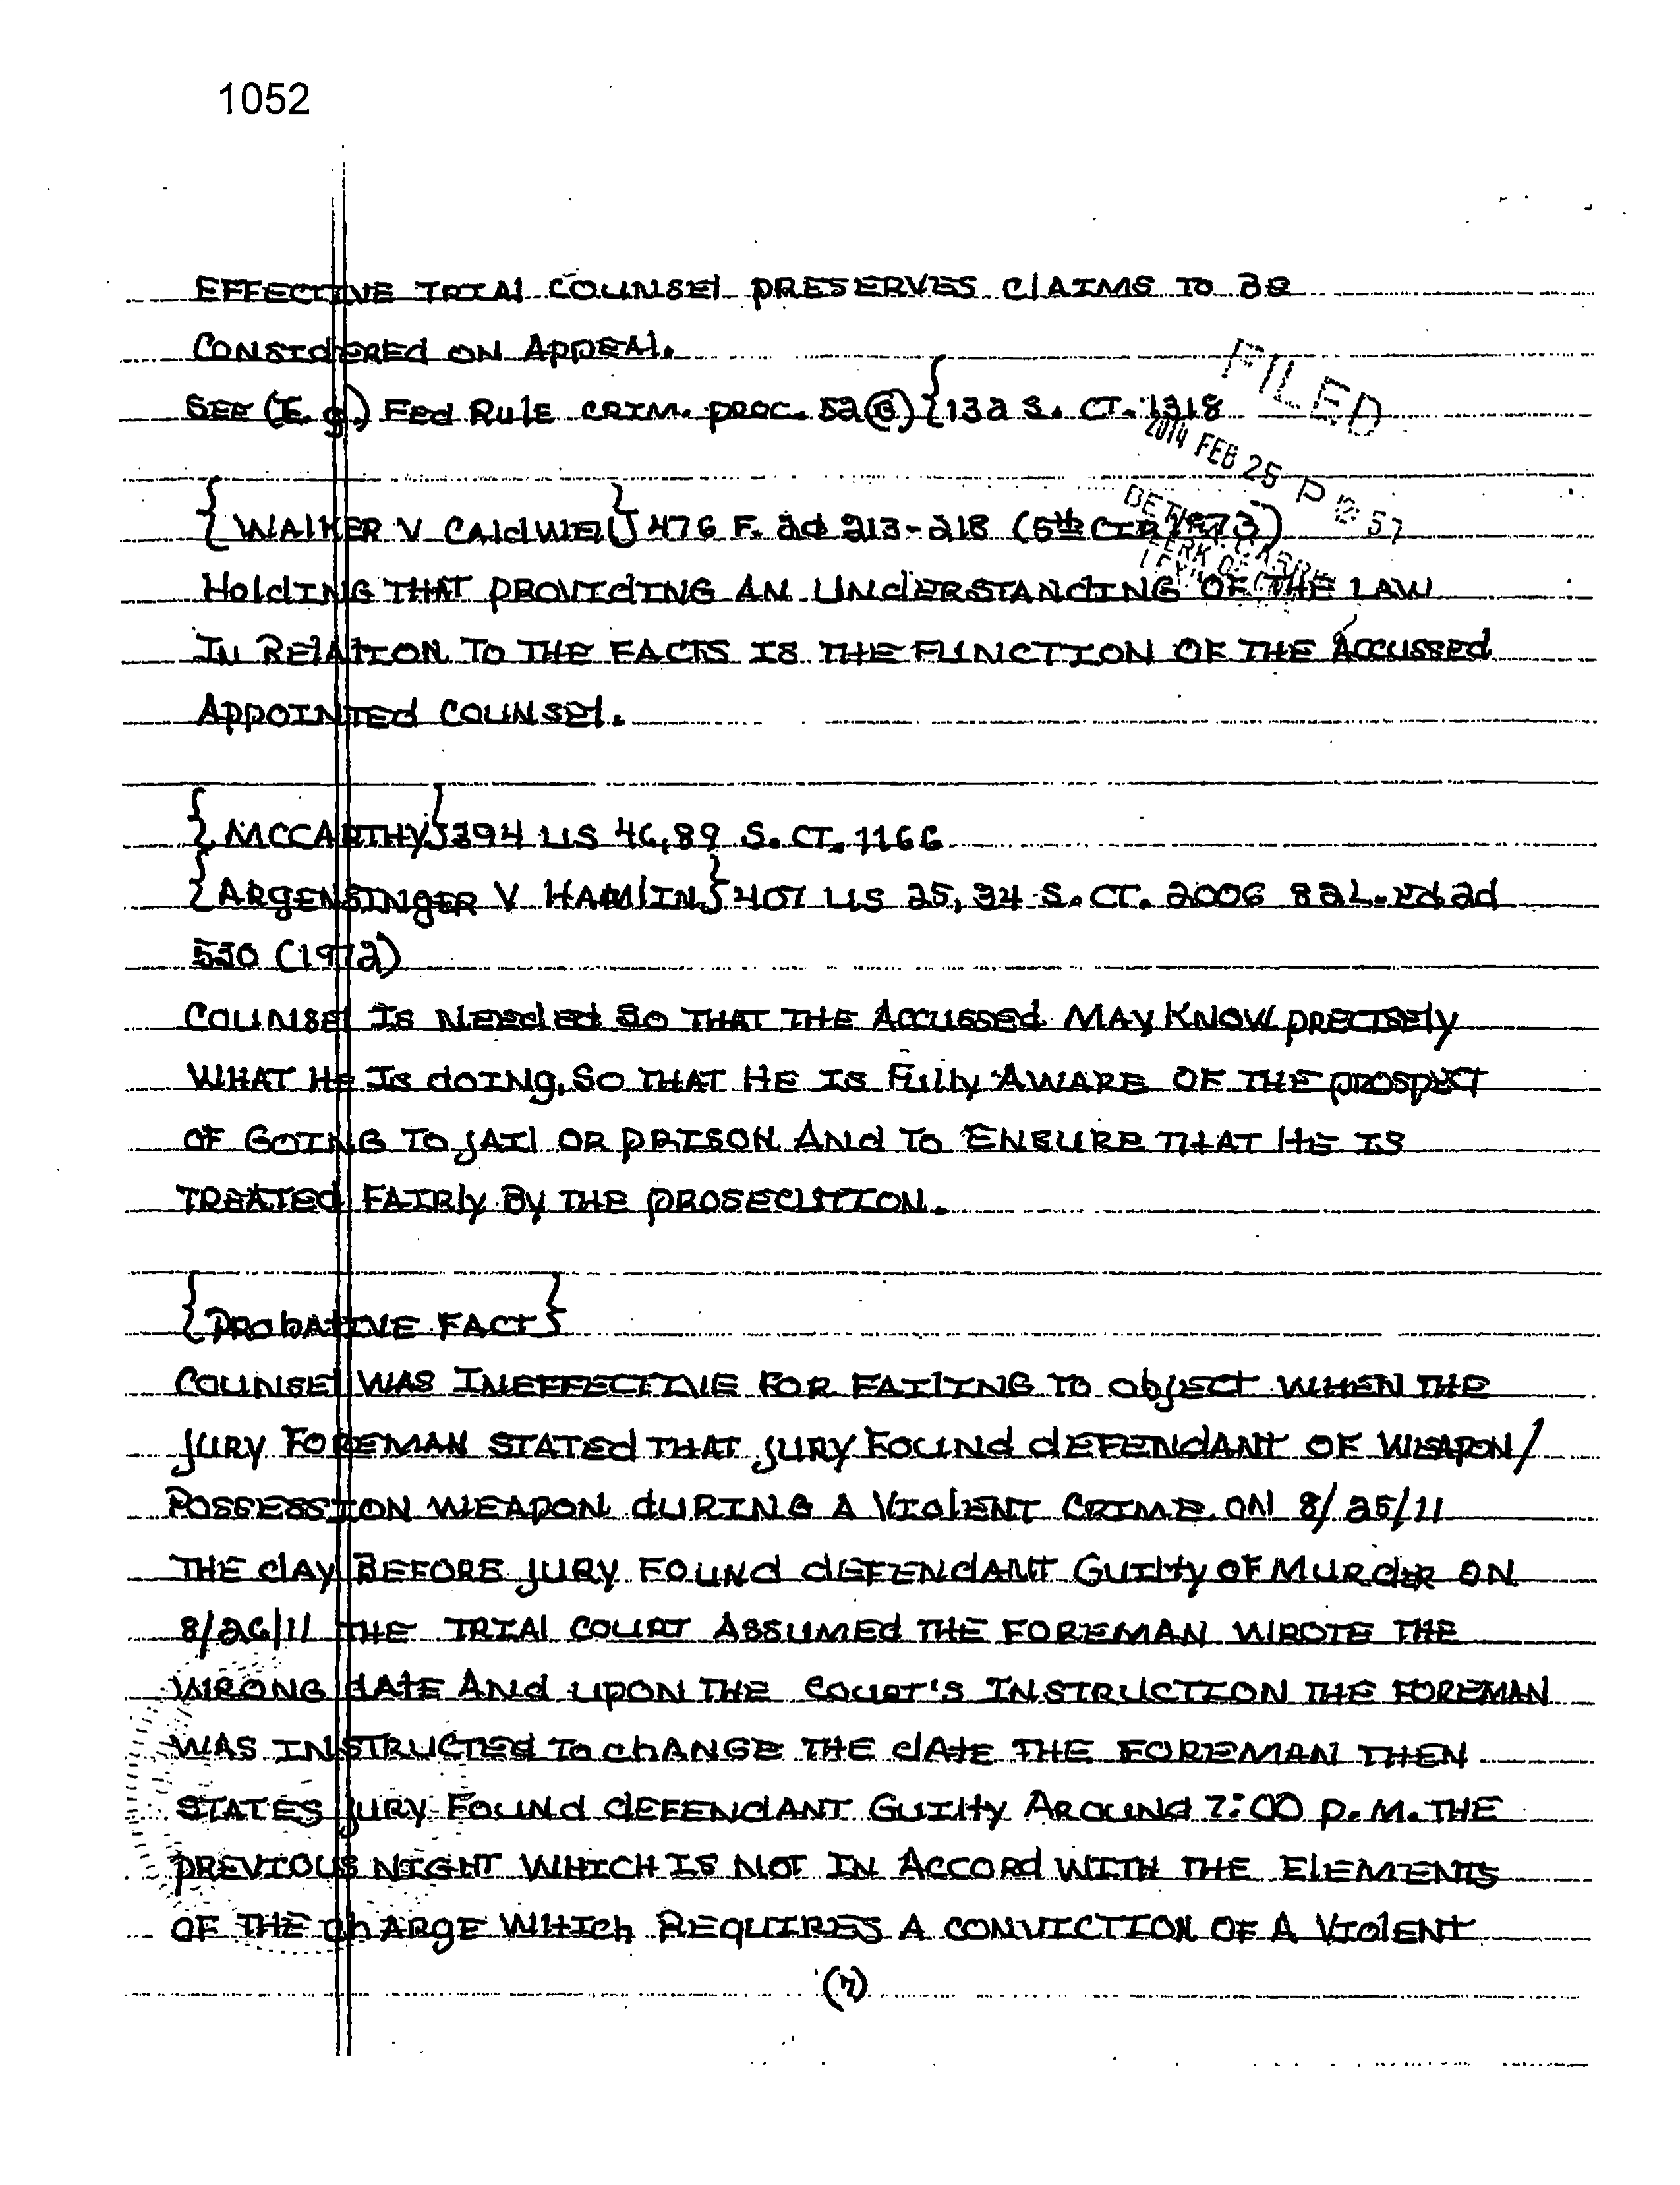 1052
EFFECTIVE TRIAl COUNSEl PRESERVES ClAIMS TO BE
CONSIdERED ON APPEAl.
SEE (E.g.) Fed RULE CRIM. PROC. 52(B) {132 S. CT. 1318
FILED
2014 FEB 25 P 12: 57
{WAlKER V CAldWEll} 476 F. 2d 213-218 (5th CIR 1973)
HoldING THAT PROVIdING AN UNdERSTANdING OF THE LAW
IN RElATION TO THE FACTS IS THE FUNCTION OF THE ACCUSSED
APPOINTEd COUNSEl.
{MCCARTHY} 394 US 46, 89 S. CT. 1166
{ARgENSINgER V HAMlIN} 407 US 25, 34 S. CT. 2006 82 L. Ed 2d
530 (1972)
COUNSEl IS NEEdEd SO THAT THE ACCUSSED MAY KNOW PRECISEly
WHAT HE IS dOING, SO THAT HE IS Fully AWARE OF THE PROSPECT
OF GOING TO JAIl OR PRISON ANd TO ENSURE THAT HE IS
TREATEd FAIRly By THE PROSECUTION.
{PRObATIVE FACT}
COUNSEl WAS INEFFECTIVE FOR FAIlING TO ObJECT WHEN THE
JURY FOREMAN STATEd THAT JURY FOUNd dEFENdANT OF WEAPON/
POSSESSION WEAPON dURING A VIOlENT CRIME ON 8/25/11
THE dAY BEFORE JURY FOUNd dEFENdANT GUIlTy OF MURdER ON
8/26/11 THE TRIAl COURT ASSUMEd THE FOREMAN WROTE THE
WRONG dATE ANd UPON THE COURT'S INSTRUCTION THE FOREMAN
WAS INSTRUCTEd TO chANGE THE dATE THE FOREMAN THEN
STATES JURY FOUNd dEFENdANT GUIlTy AROUNd 7:00 P.M. THE
PREVIOUS NIGHT WHICH IS NOT IN ACCORd WITH THE ElEMENTS
OF THE chARGE WHICh REQUIRES A CONVICTION OF A VIOlENT
(7)